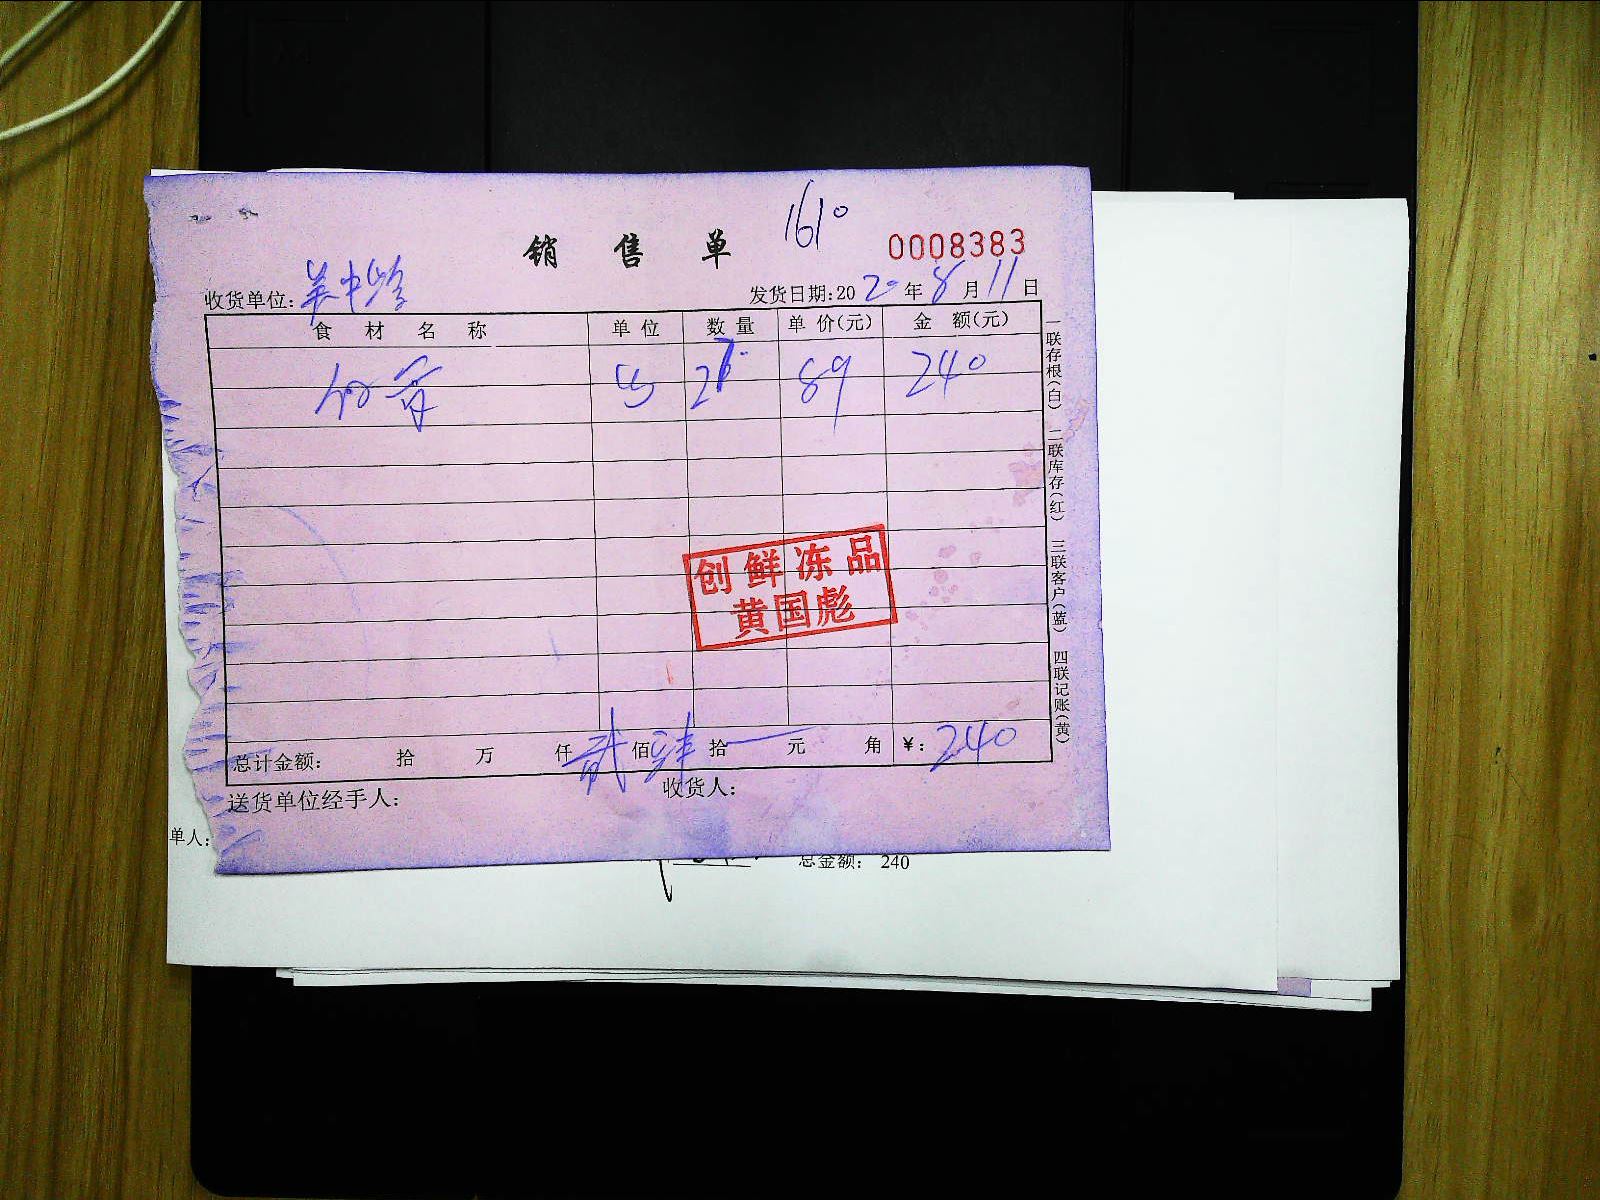 161°
销售单
0008383
收货单位:
发货日期:2020年8月11日
食材名称 单位 数量 单价(元) 金额(元)
89 240
创鲜冻品
黄国彪
总计金额: 拾 万 仟 贰 佰 肆 拾 元 角 ¥:240
送货单位经手人: 收货人:
一联存根(白) 二联库存(红) 三联客户(蓝) 四联记账(黄)
单人:
总金额: 240